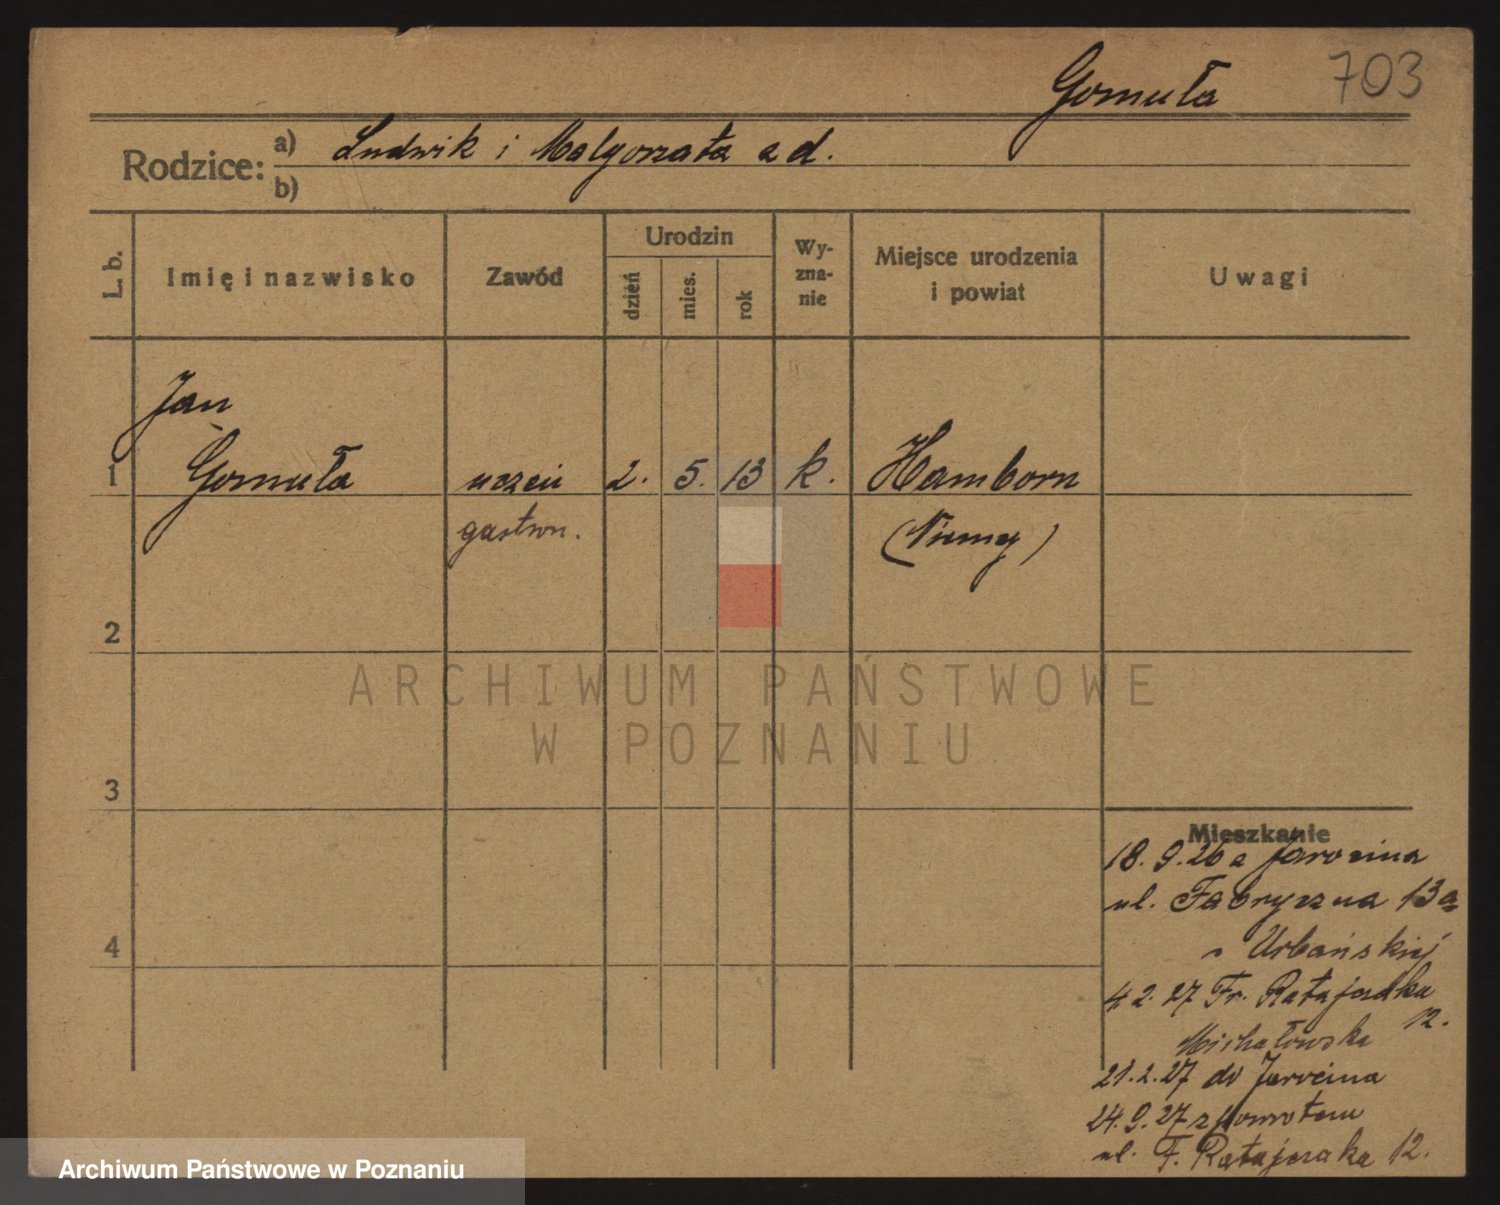 Gomuła 703
Rodzice: a) Ludwik i Małgorzata z d.
b)
L. b. Imię i nazwisko Zawód Urodzin dzień mies. rok Wyznanie Miejsce urodzenia i powiat Uwagi
Jan
1 Gomuła uczeń 2. 5. 13 k. Hamborn
gastron. (Niemcy)
2
ARCHIWUM PAŃSTWOWE
W POZNANIU
3
Mieszkanie
18. 9. 26 z Jarocina
ul. Fabryczna 13a
4
Urbańskiej
4 2. 27 Fr. Ratajczaka
12.
Michałowska
21. 2. 27 do Jarocina
24. 9. 27 z powrotem
ul. F. Ratajczaka 12.
Archiwum Państwowe w Poznaniu